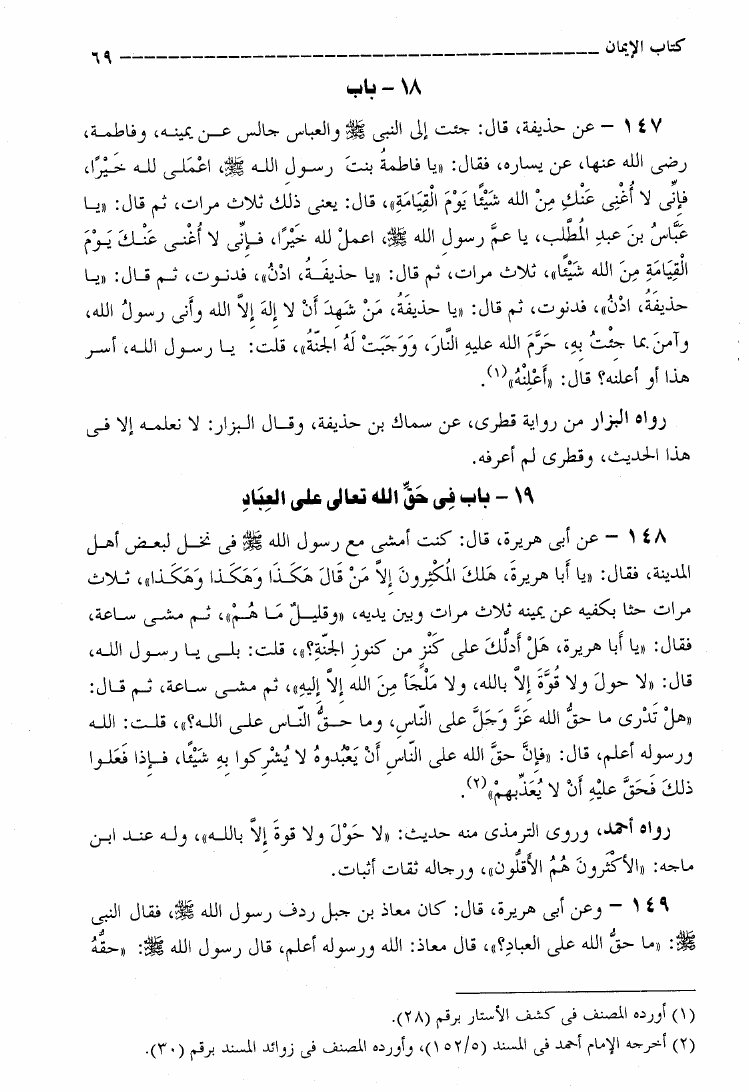 كتاب الإيمان ــــــــــــــــــــــــــــــــــــــــ ٦٩
١٨ - باب
١٤٧ - عن حذيفة، قال: جئت إلى النبى ﷺ والعباس جالس عن يمينه، وفاطمة،
رضى الله عنها، عن يساره، فقال: «يا فاطمةُ بنتَ رسول الله ﷺ، اعْمَلى لله خَيْرًا،
فإِنِّى لا أُغْنِى عَنْكِ مِنْ الله شَيْئًا يَوْمَ الْقِيَامَةِ»، قال: يعنى ذلك ثلاث مرات، ثم قال: «يا
عَبَّاسُ بنَ عبدِ المُطَّلب، يا عمَّ رسول الله ﷺ، اعملْ لله خَيْرًا، فإِنِّى لا أُغْنى عَنْكَ يَوْمَ
الْقِيَامَةِ مِنَ الله شَيْئًا»، ثلاث مرات، ثم قال: «يا حذيفَةُ، ادْنُ»، فدنوت، ثم قال: «يا
حذيفَةُ، ادْنُ»، فدنوت، ثم قال: «يا حذيفةُ، مَنْ شَهِدَ أَنْ لا إلهَ إِلاَّ الله وأنى رسولُ الله،
وآمنَ بما جئْتُ بِهِ، حَرَّمَ الله عليهِ النَّارَ، وَوَجَبَتْ لَهُ الجنّةُ»، قلت: يا رسول الله، أسر
هذا أو أعلنه؟ قال: «أَعْلِنْهُ»(١).
رواه البزار من رواية قطرى، عن سماك بن حذيفة، وقال البزار: لا نعلمه إلا فى
هذا الحديث، وقطرى لم أعرفه.
١٩ - باب فِى حَقِّ الله تعالى على العِبَادِ
١٤٨ - عن أبى هريرة، قال: كنت أمشى مع رسول الله ﷺ فى نخل لبعض أهل
المدينة، فقال: «يا أبا هريرةَ، هَلكَ المُكْثِرونَ إلاَّ مَنْ قَالَ هَكَذَا وَهَكَذا وَهَكَذا»، ثلاث
مرات حثا بكفيه عن يمينه ثلاث مرات وبين يديه، «وقليلٌ مَا هُمْ»، ثم مشى ساعة،
فقال: «يا أبا هريرة، هَلْ أدلُّكَ على كَنْزٍ من كنوزِ الجنّةِ؟»، قلت: بلى يا رسول الله،
قال: «لا حولَ ولا قُوَّةَ إِلاَّ بالله، ولا مَلْجَأَ مِنَ الله إلاَّ إليهِ»، ثم مشى ساعة، ثم قال:
«هلْ تَدْرى ما حقُّ الله عَزَّ وَجَلَّ على النَّاسِ، وما حقُّ النّاس على الله؟»، قلت: الله
ورسوله أعلم، قال: «فإنَّ حقَّ الله على النَّاسِ أَنْ يَعْبُدوهُ لا يُشْرِكوا بِهِ شَيْئًا، فإِذا فَعَلوا
ذلكَ فَحَقَّ عليْهِ أَنْ لا يُعَذِّبهمْ»(٢).
رواه أحمد، وروى الترمذى منه حديث: «لا حَوْلَ ولا قوةَ إلاَّ بالله»، وله عند ابن
ماجه: «الأكْثَرونَ هُمُ الأقَلُّون»، ورجاله ثقات أثبات.
١٤٩ - وعن أبى هريرة، قال: كان معاذ بن جبل ردف رسول الله ﷺ، فقال النبى
ﷺ: «ما حقُّ الله على العبادِ؟»، قال معاذ: الله ورسوله أعلم، قال رسول الله ﷺ: «حقُّهُ
(١) أورده المصنف فى كشف الأستار برقم (٢٨).
(٢) أخرجه الإمام أحمد فى المسند (١٥٢/٥)، وأورده المصنف فى زوائد المسند برقم (٣٠).